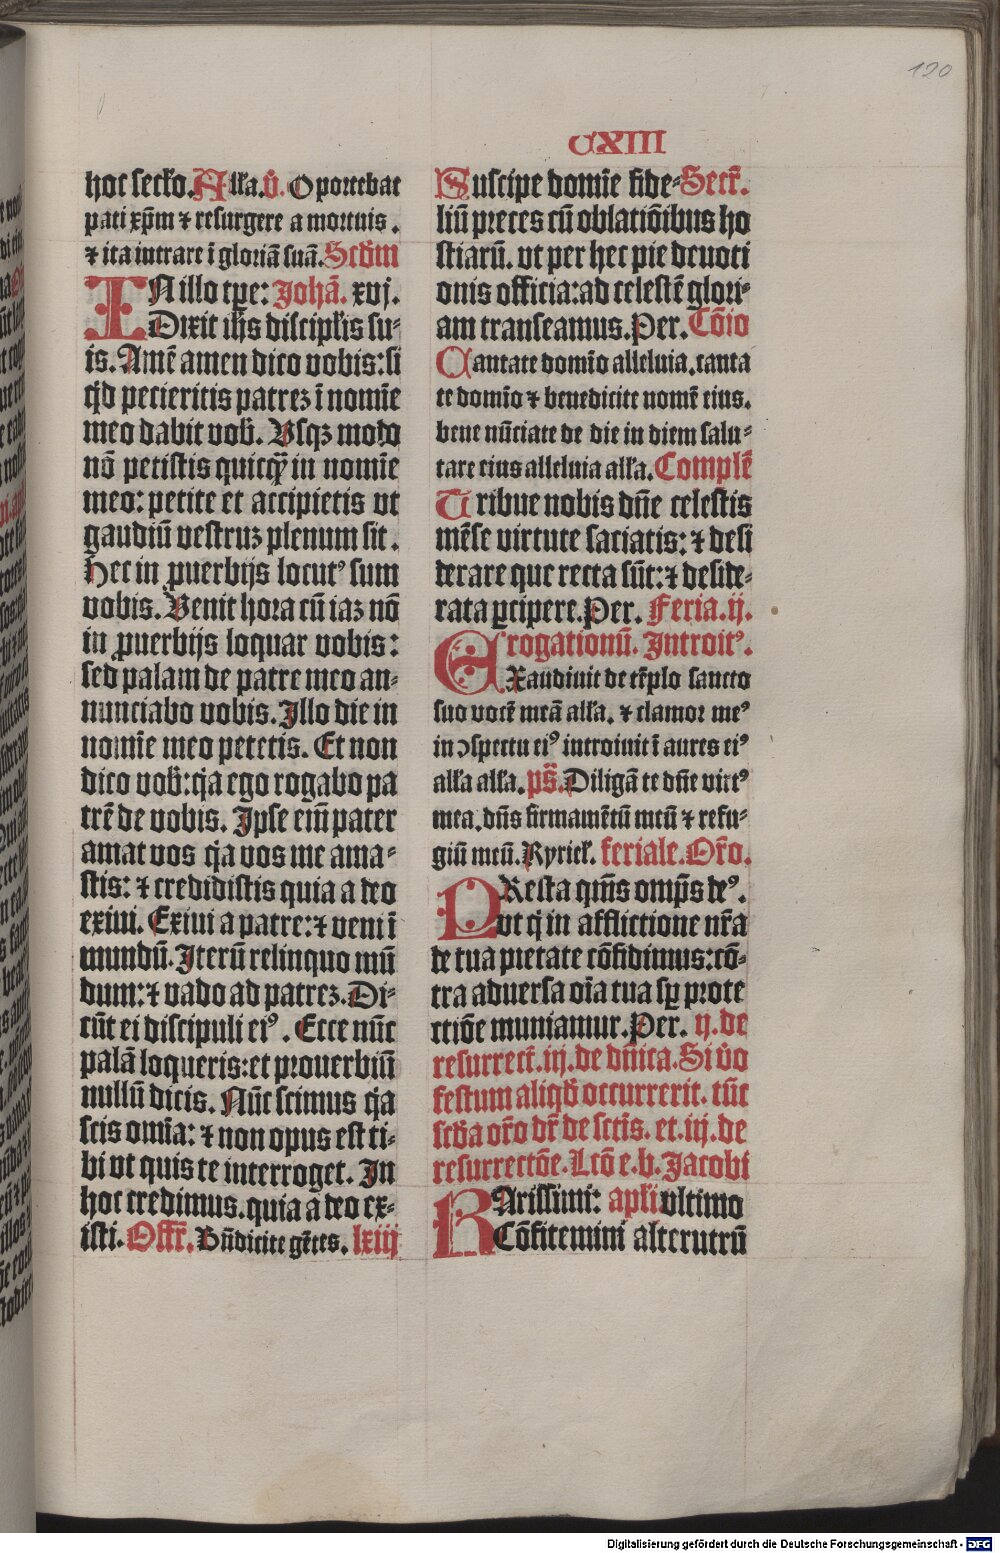 120
CXIII
hoc secło. Ałła. v̊. Oportebat
pati xp̄m ⁊ resurgere a mortuis.
⁊ ita intrare ī gloriā suā. Scd̄m
IN illo tp̄e: Johā. xvj.
Dixit ih̄s discipłis su⸗
is. Amē amen dico vobis: si
qd̄ petieritis patreꝫ ī nomīe
meo dabit vob̄. Vsqꝫ modo
nō petistis quicq̄ in nomīe
meo: petite et accipietis vt
gaudiū vestruꝫ plenum sit.
Hec in ꝓuerbijs locutꝰ sum
vobis. Venit hora cū iaꝫ nō
in ꝓuerbijs loquar vobis:
sed palam de patre meo an⸗
nunciabo vobis. Illo die in
nomīe meo petetis. Et non
dico vob̄: qa ego rogabo pa
trē de vobis. Ipse eīm pater
amat vos qa vos me ama⸗
stis: ⁊ credidistis quia a deo
exiui. Exiui a patre: ⁊ veni ī
mundū. Iterū relinquo mū
dum: ⁊ vado ad patreꝫ. Di⸗
cūt ei discipuli eiꝰ. Ecce nūc
palā loqueris: et prouerbiū
nullū dicis. Nūc scimus qa
scis omīa: ⁊ non opus est ti⸗
bi vt quis te interroget. In
hoc credimus. quia a deo ex⸗
isti. Offr̄. Bn̄dicite gētes. lxiij
Suscipe domīe fide⸗ Secr̄.
liū preces cū oblatiōibus ho
stiarū. vt per hec pie deuoti
onis officia: ad celestē glori⸗
am transeamus. Per. Cōio
Cantate domīo alleluia. canta
te domīo ⁊ benedicite nomē eius.
bene nūciate de die in diem salu⸗
tare eius alleluia ałła. Complē
Tribue nobis dn̄e celestis
mēse virtute saciatis: ⁊ desi
derare que recta sūt: ⁊ deside⸗
rata ꝑcipere. Per. Feria. ij.
rogationū. Introitꝰ.
EXaudiuit de tēplo sancto
suo vocē meā ałła. ⁊ clamor meꝰ
in ↄspectu eiꝰ introiuit ī aures eiꝰ
ałła ałła. ps̄. Diligā te dn̄e virtꝰ
mea. dn̄s firmamētū meū ⁊ refu⸗
giū meū. Kyrieł. feriale. Or̄o.
PResta qm̄s omp̄s deꝰ.
vt q̇ in afflictione nr̄a
de tua pietate cōfidimus: cō⸗
tra aduersa oīa tua sꝑ prote
ctiōe muniamur. Per. ij. de
resurrect̄. iij. de dn̄ica. Si v̊o
festum aliqd̄ occurrerit. tūc
scd̄a or̄o dr̄ de sctīs. et. iij. de
resurrectōe. Lcō e. b. Jacobi
KArissimi: apłi vltimo
Cōfitemini alterutrū
Digitalisierung gefördert durch die Deutsche Forschungsgemeinschaft - DFG